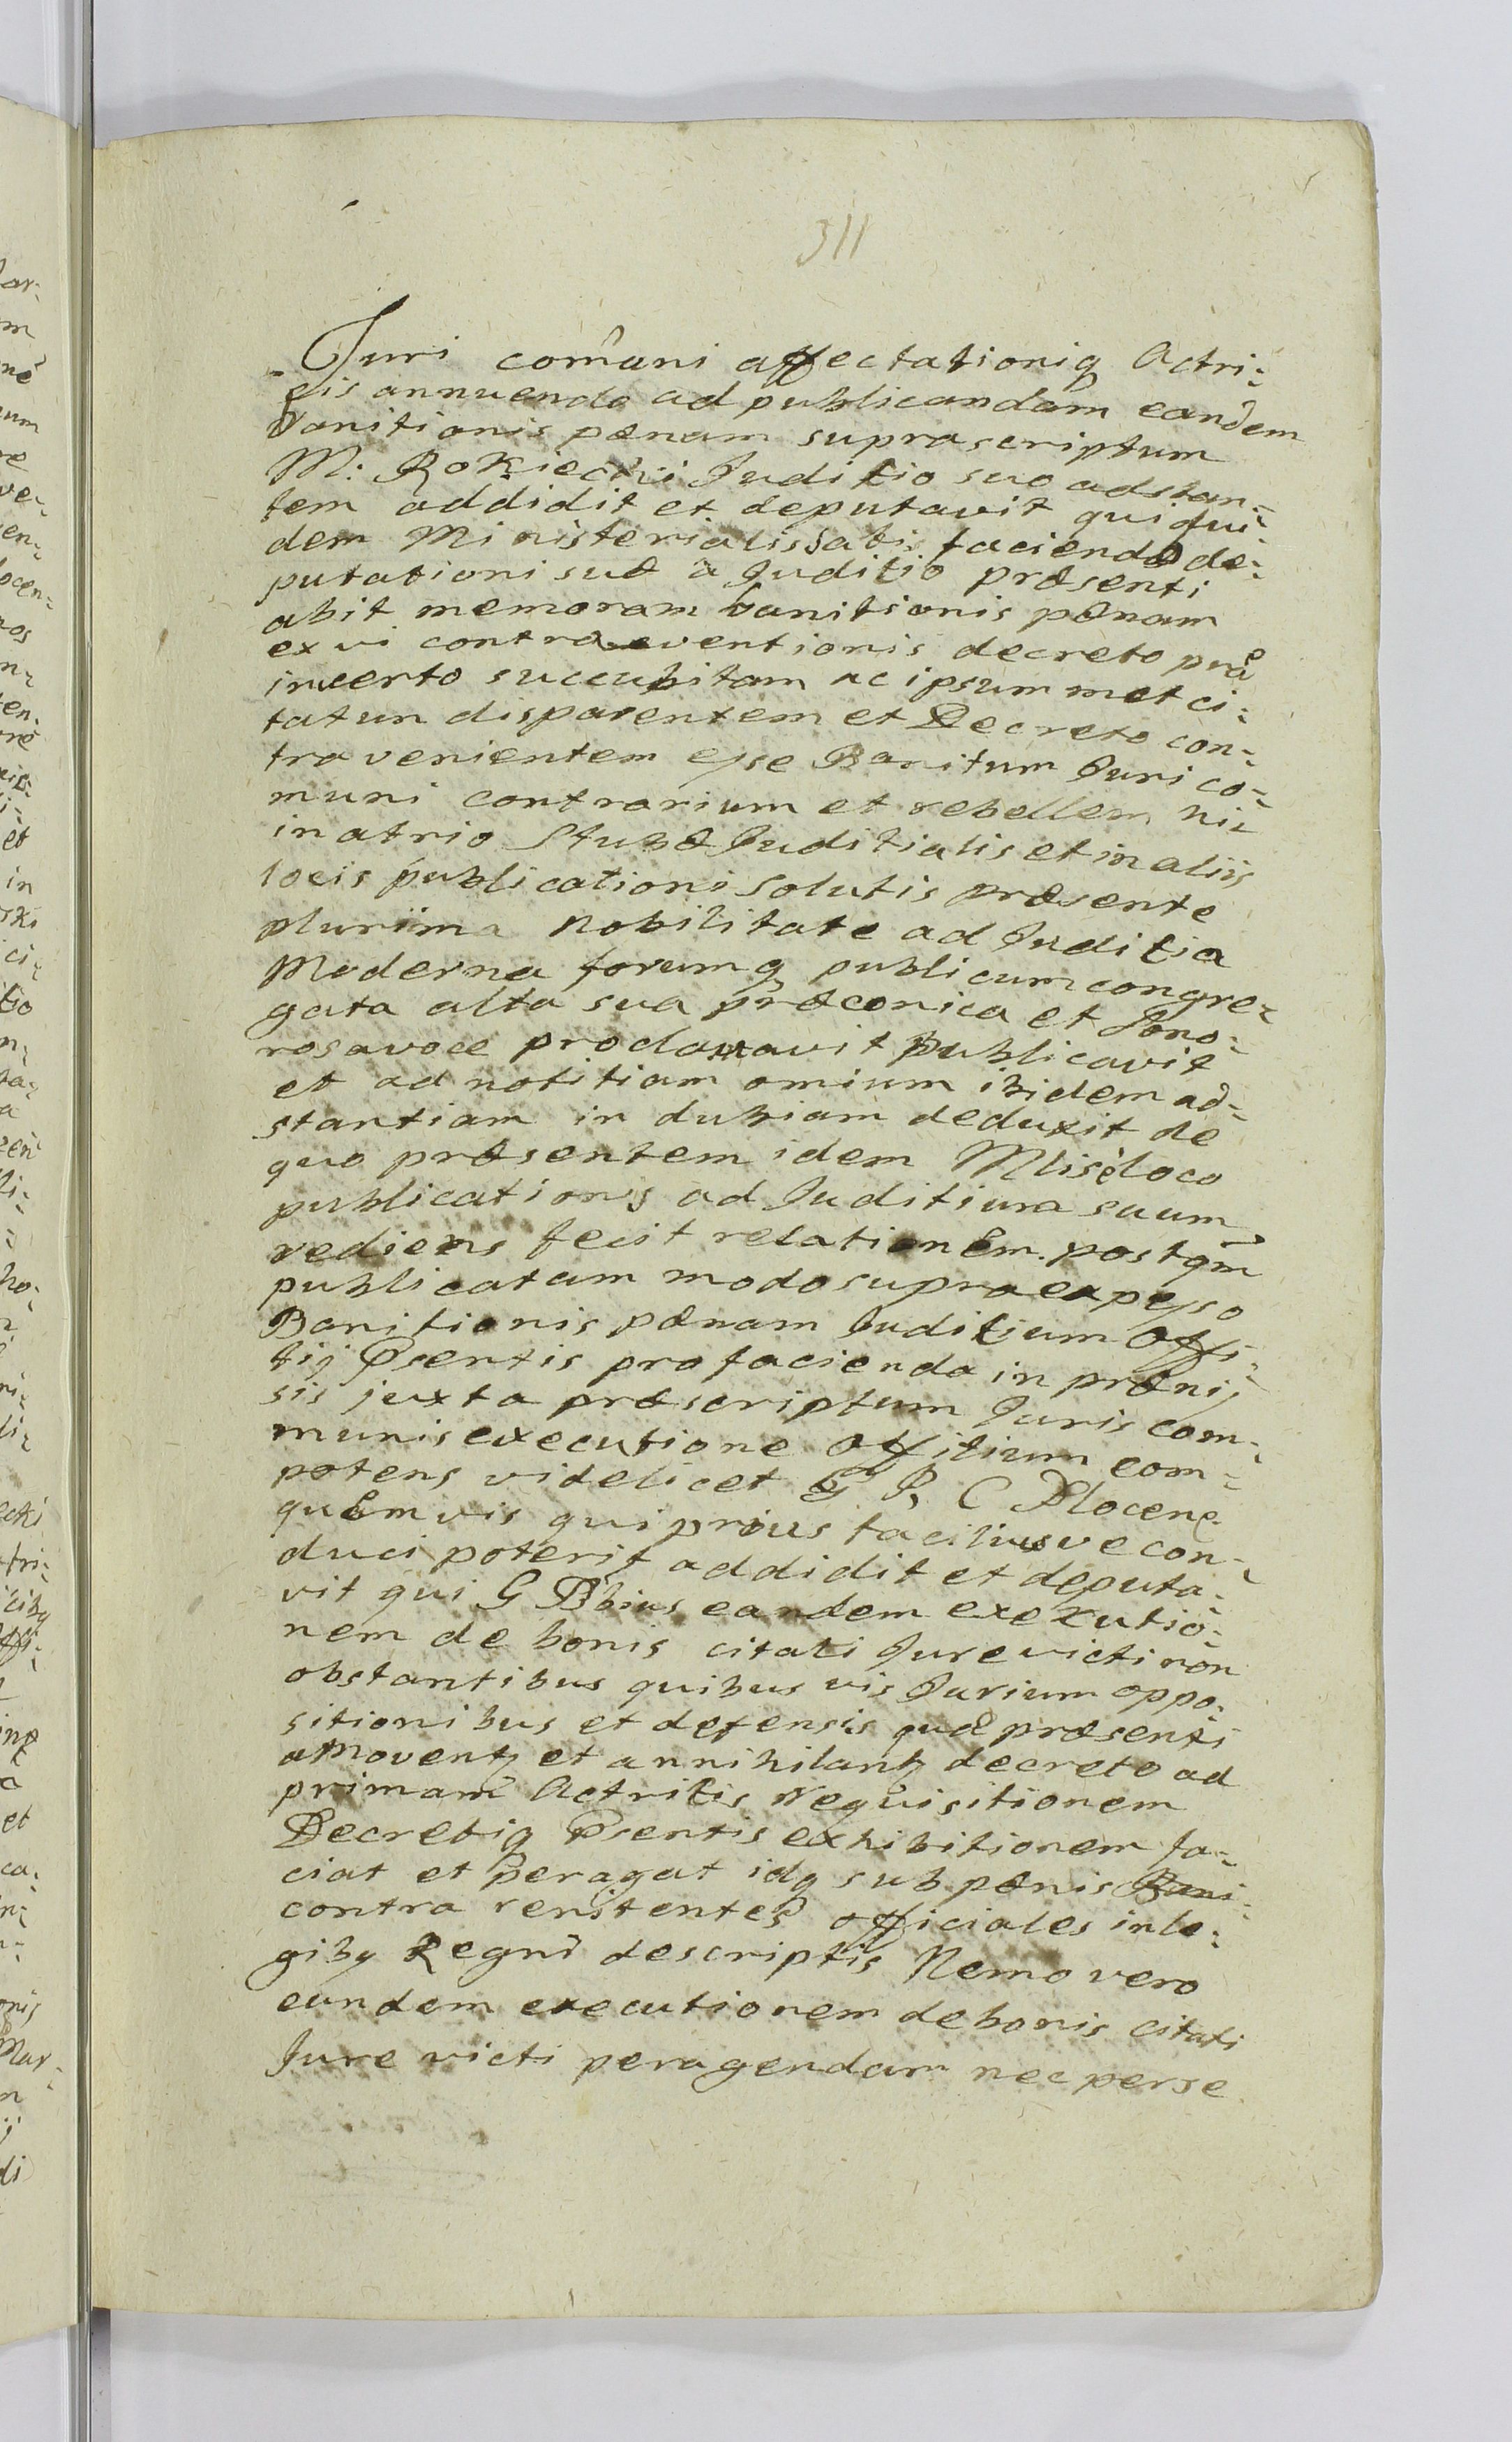 311
Juri com̃uni affectationiq Actri-
cis annuendo ad publicandam eandem
Banitionis pænam suprascriptum
M: Rokiecki Juditio suo adstan-
tem addidit et deputavit qui qui-
dem Ministerialis satis faciendo de-
putationi suæ a Juditio præsenti
abit memoram banitionis pænam
ex vi contraventionis decreto præ
incerto succubitam ac ipsum met ci-
tatun disparentem et Decreto con-
tra venientem esse Banitum Juri co-
muni contrarium et rebellem hic
in atrio Stubæ Juditialis et in aliis
locis publicationi solutis præsente
plurima nobilitate ad Juditia
Moderna forumq publicum congre-
gata alta sua præconica et sono-
rosa voce proclamavit publicavit
et ad notitiam omium ibidem ad-
stantiam in dubiam deduxit de
quo præsentem idem Mlis è loco
publicationis ad Juditium suum
rediens fecit relationem. post qm̃
publicatam modo supra expesso
Banitionis pænam Juditium Offi-
tij Psentis pro facienda in præmij
sis juxta præscriptum Juris com-
munis executione Offitium com-
potens videlicet G P, C Plocens
quemvis qui prius faciliusve con-
duci poterit addidit et deputa-
vit qui G Pbius eandem exekutio-
nem de bonis citati Jure victi non
obstantibus quibus vis Jurium oppo-
sitionibus et defensis quæ præsenti
amoventz et annihilantz decreto ad
primam Actricis requisitionem
Decretiq Psentis exhibitionem fa-
ciat et peragat idq sub pænis Bani-
contra renitentes officiales in le-
gibq Regni descriptis Nemo vero
eundem executionem de bonis citati
Jure victi peragendam nec per se